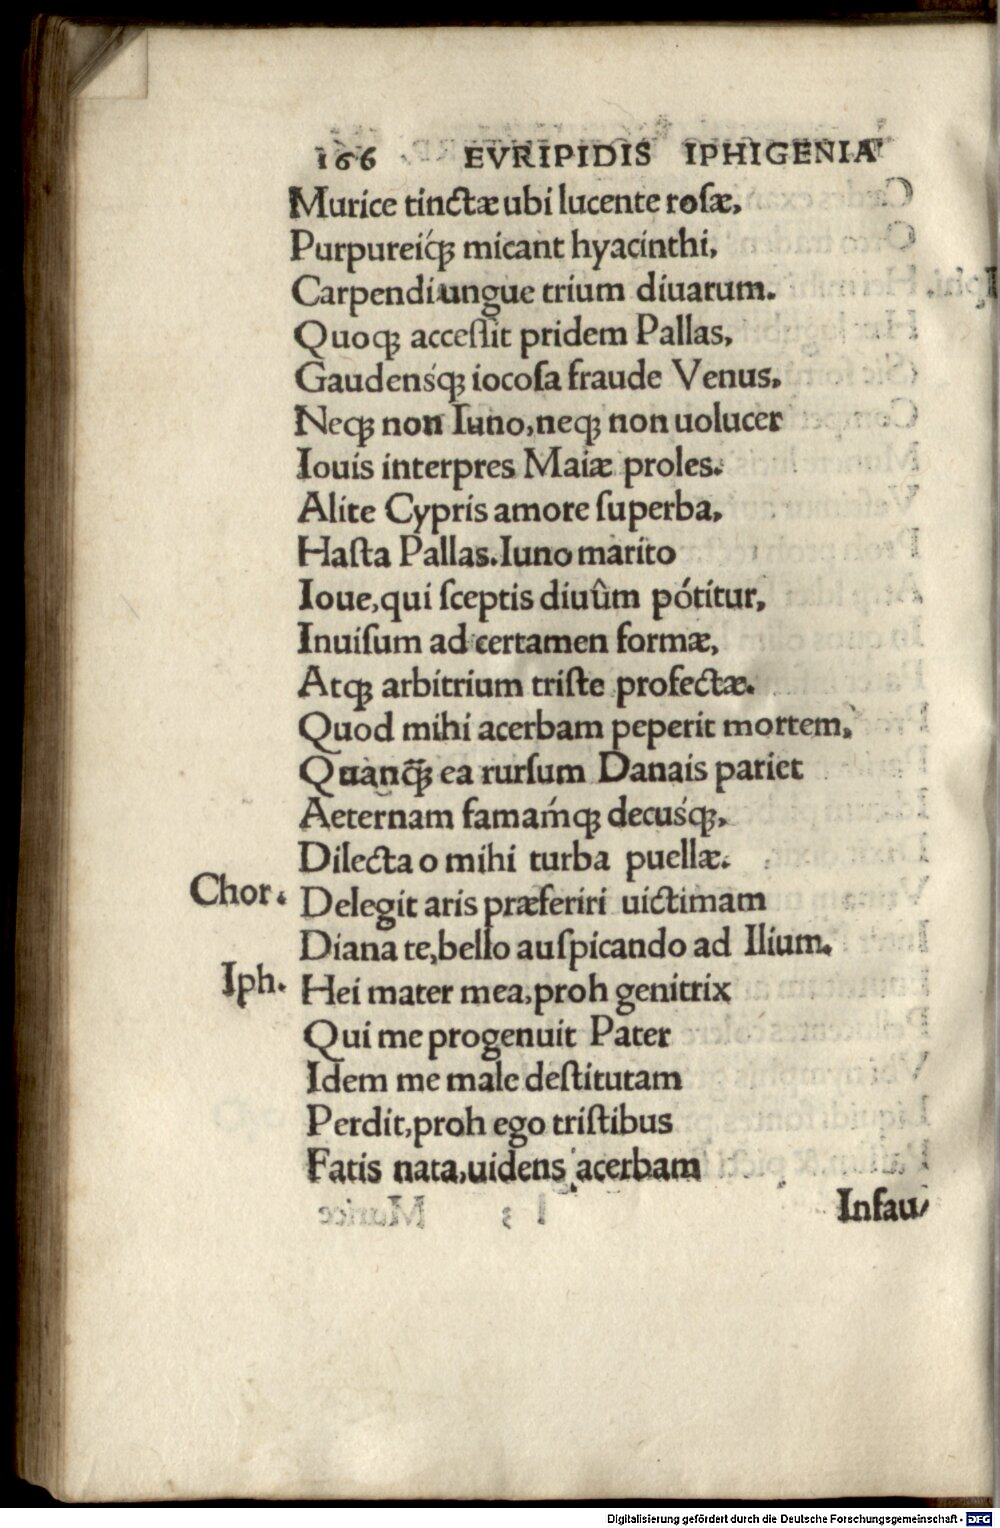 166 EVRIPIDIS IPHIGENIA
Murice tinctæ ubi lucente rosæ,
Purpureiq́ꝫ micant hyacinthi,
Carpendi ungue trium diuarum.
Quoqꝫ accessit pridem Pallas,
Gaudensq́ꝫ iocosa fraude Venus.
Neqꝫ non Iuno, neqꝫ non uolucer
Iouis interpres Maiæ proles.
Alite Cypris amore superba,
Hasta Pallas. Iuno marito
Ioue, qui sceptis diuûm pótitur,
Inuisum ad certamen formæ,
Atqꝫ arbitrium triste profectæ.
Quod mihi acerbam peperit mortem,
Quanq̃ꝫ ea rursum Danais pariet
Aeternam famaḿqꝫ decusq́ꝫ,
Dilecta o mihi turba puellæ.
Chor. Delegit aris præferiri uictimam
Diana te, bello auspicando ad Ilium.
Iph. Hei mater mea, proh genitrix
Qui me progenuit Pater
Idem me male destitutam
Perdit, proh ego tristibus
Fatis nata, uidens acerbam
Infau⸗
Digitalisierung gefördert durch die Deutsche Forschungsgemeinschaft - DFG